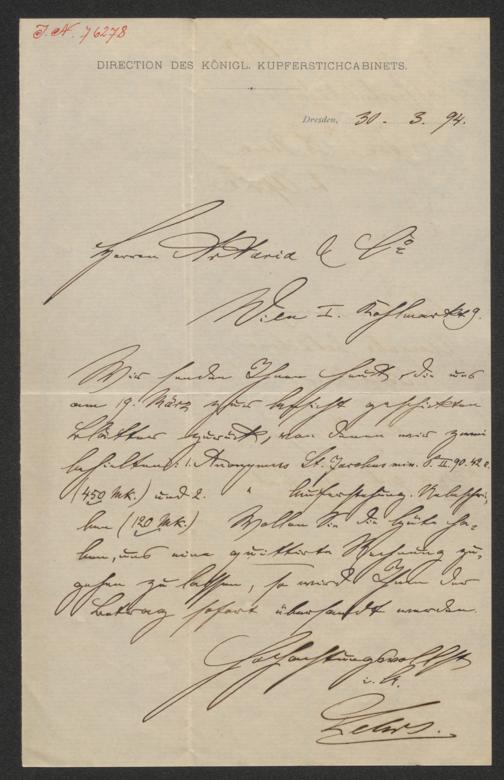 J. N. 76278
DIRECTION DES KÖNIGL. KUPFERSTICHCABINETS.
Dresden, 30. 3. 94.
Herren Artaria & Co
Wien I. Kohlmarkt 9.
Wir senden Ihnen heute die uns
am 19. März zur Ansicht geschickten
Blätter zurück, von denen wir zwei
behielten: 1. Anonymus St. Jacobus min. P. II. 90. 42
(450 Mk.) und 2. " Auferstehung.
ben (120 Mk.) Wollen Sie die Güte ha-
ben, uns eine quittirte Rechnung zu-
gehen zu lassen, so wird Ihnen der
Betrag sofort übersandt werden.
Hochachtungsvollst
i. V.
Lehrs.